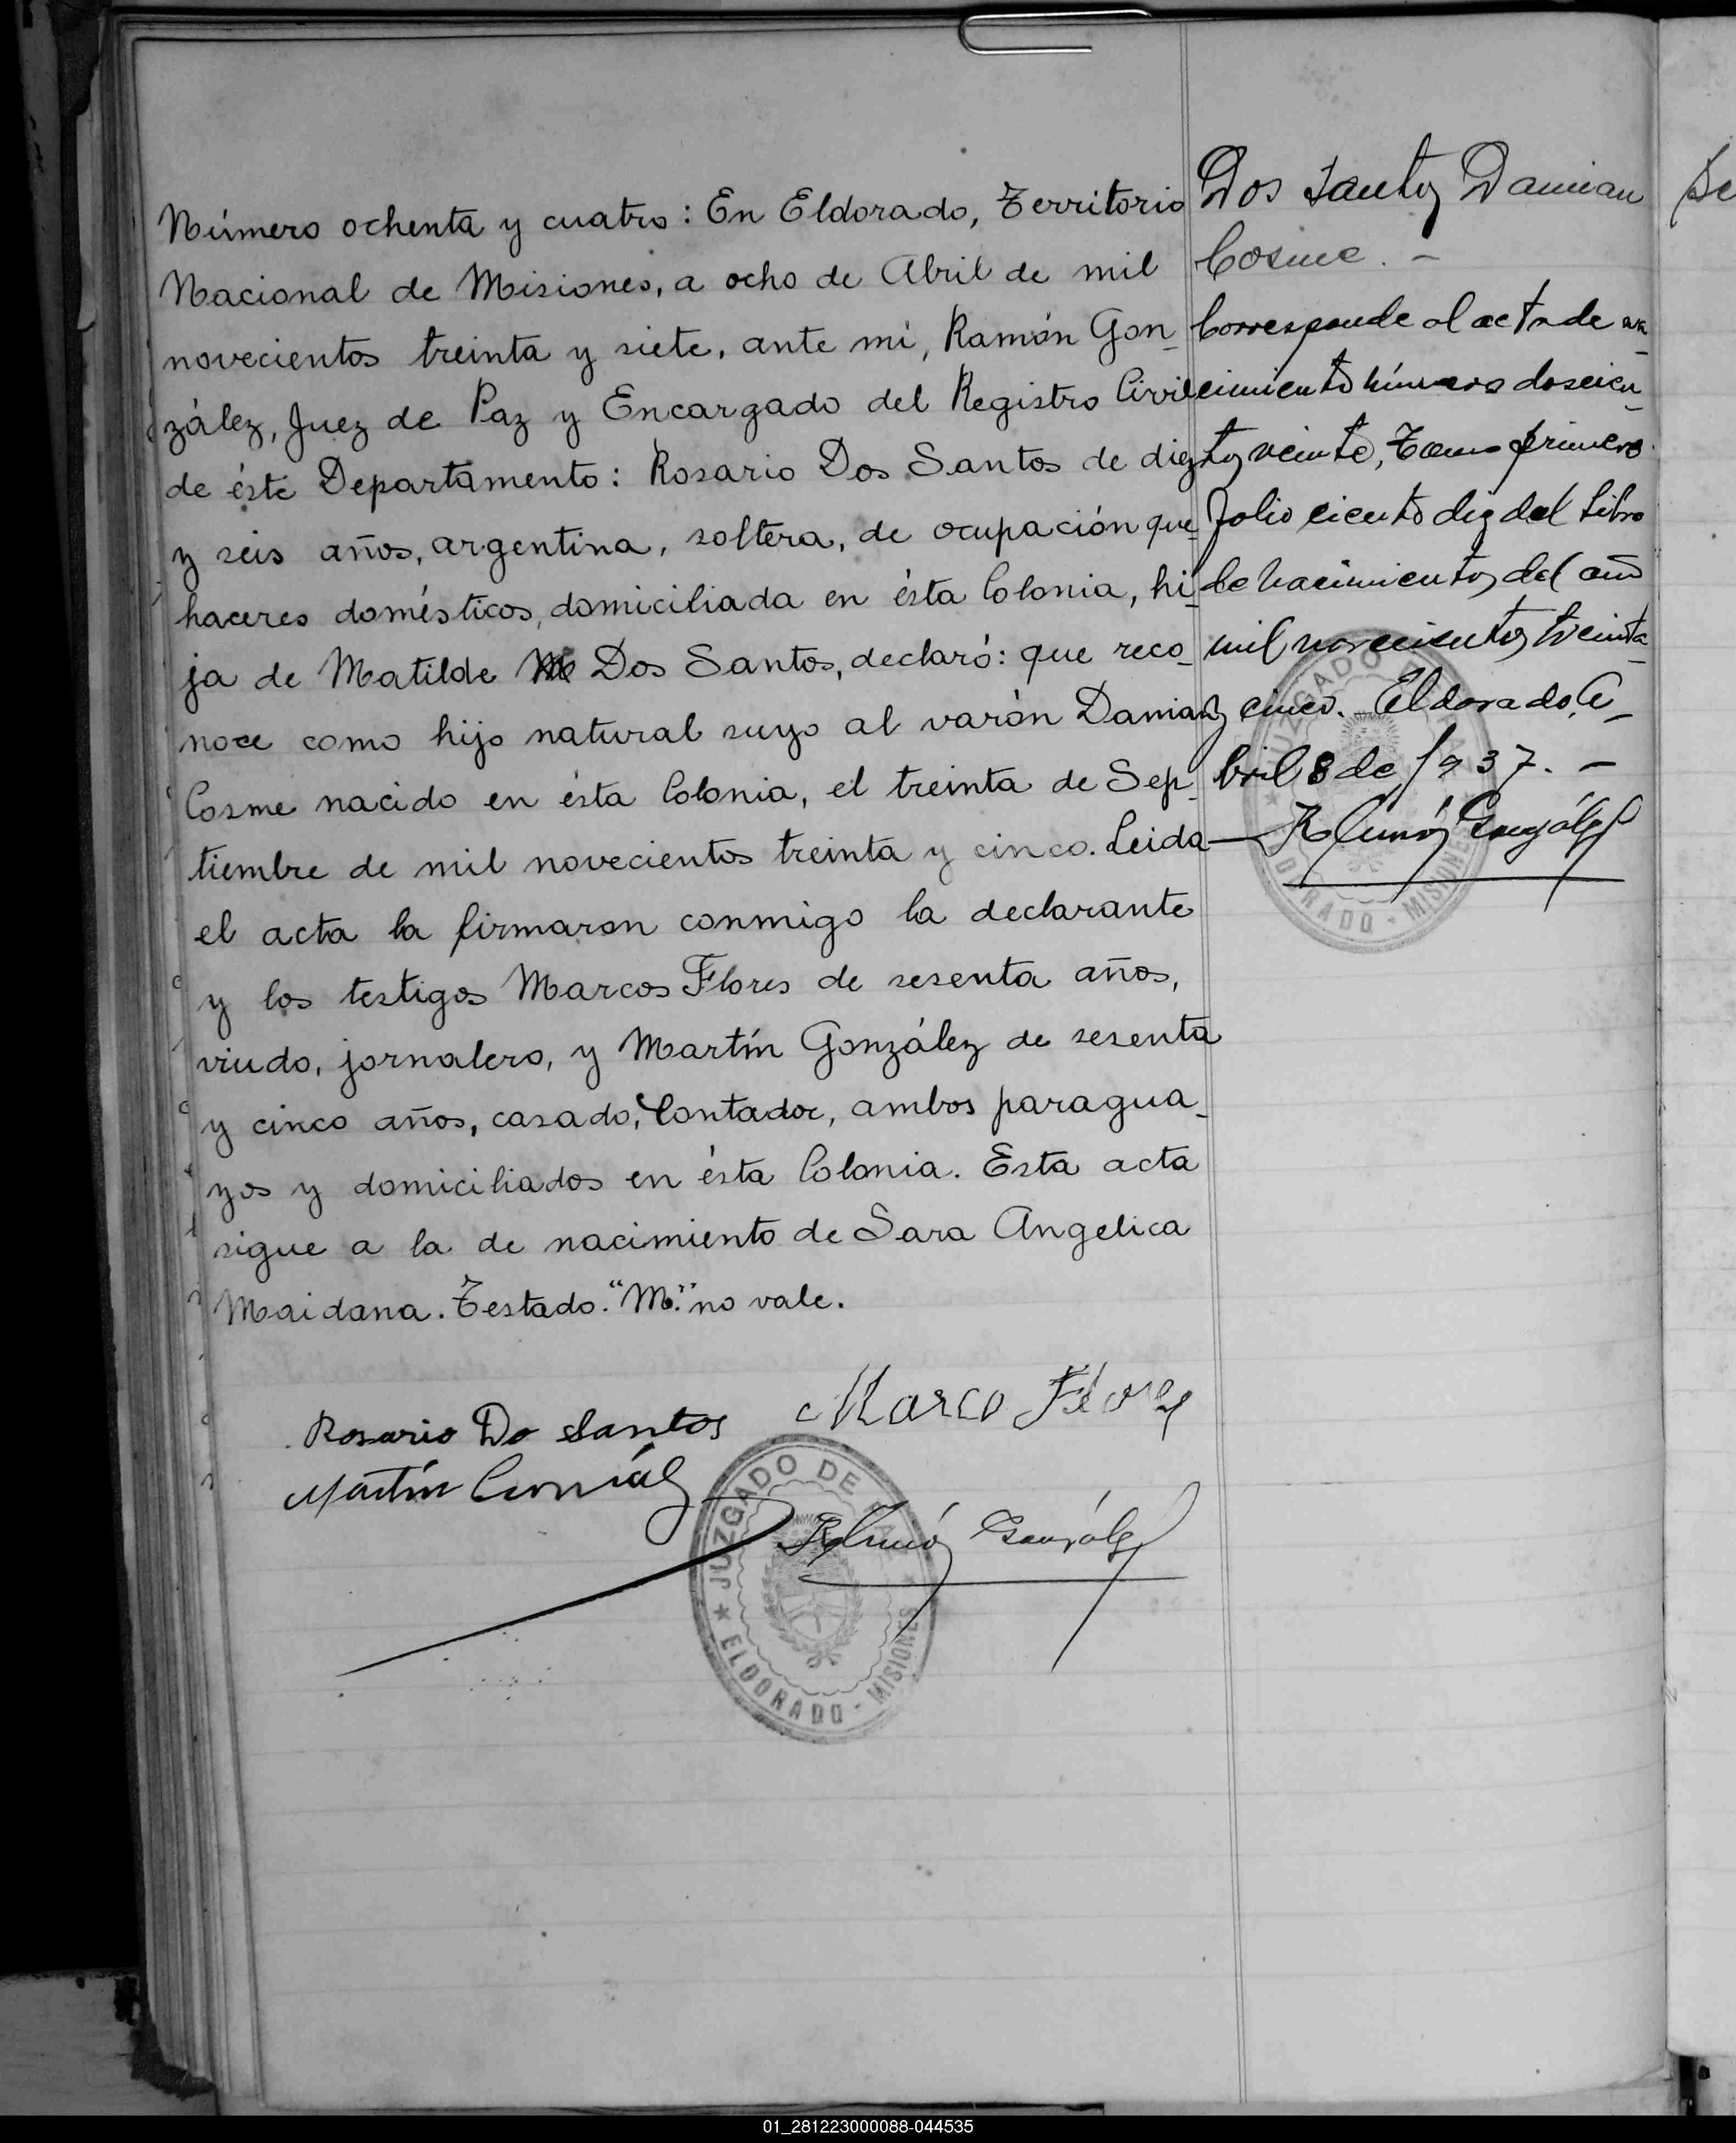 Número ochenta y cuatro: En Eldorado, Territorio
Nacional de Misiones, a ocho de Abril de mil
novecientos treinta y siete, ante mí, Ramón Gon-
zález, Juez de Paz y Encargado del Registro Civil
de éste Departamento: Rosario Dos Santos de diez
y seis años, argentina, soltera, de ocupación que-
haceres domésticos, domiciliada en ésta Colonia, hi-
ja de Matilde M Dos Santos, declaró: que reco-
noce como hijo natural suyo al varón Damian
Cosme nacido en ésta Colonia, el treinta de Sep-
tiembre de mil novecientos treinta y cinco. Leida
el acta la firmaron conmigo la declarante
y los testigos Marcos Flores de sesenta años,
viudo, jornalero, y Martín González de sesenta
y cinco años, casado, Contador, ambos paragua-
yos y domiciliados en ésta Colonia. Esta acta
sigue a la de nacimiento de Sara Angelica
Maidana. Testado: "M." no vale.
Rosario Do Santos
Marco Flores
Martín
Ramón González
JUZGADO DE PAZ
★ ELDORADO - MISIONES ★
Dos Santos Damian
Cosme. -
Corresponde al acta de na-
cimiento número doscien-
tos veinte, Tomo primero
folio ciento diez del Libro
de Nacimientos del año
mil novecientos treinta
y cinco. Eldorado, A-
bril 8 de 1937. -
Ramón González
JUZGADO DE PAZ
★ ELDORADO - MISIONES ★
01_281223000088-044535